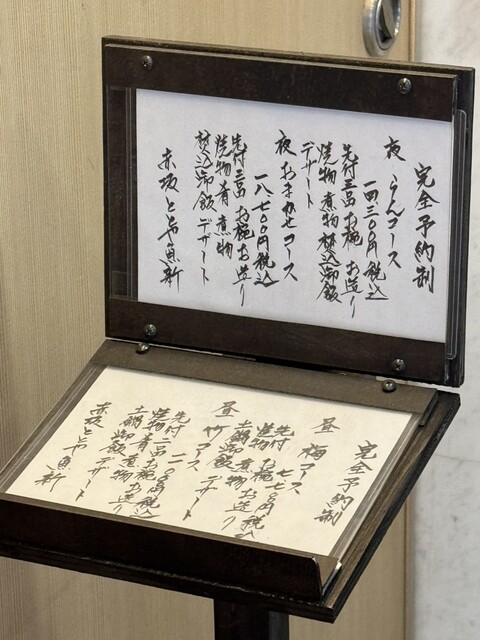 完全予約制
夜 らんコース
一四三〇〇円税込
先付三品 お椀 お造り
焼物 煮物 炊込御飯
デザート
夜 おまかせコース
一八七〇〇円税込
先付三品 お椀 お造り
焼物 肴 煮物
炊込御飯 デザート
赤坂 とゝや魚新
完全予約制
昼 梅コース
七七〇〇円税込
先付 お椀 お造り
焼物 煮物
土鍋御飯 デザート
昼 竹コース
一一〇〇〇円税込
先付二品 お椀 お造り
焼物 肴 煮物
土鍋御飯 デザート
赤坂 とゝや魚新